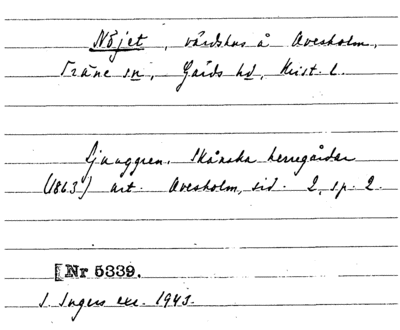 Nöjet, värdshus å Ovesholm,
Träne sn, Gärds hd, Krist. l.
Ljunggren. Skånska herregårdar
(1863) art. Ovesholm, sid. 2, sp. 2.
[Nr 5339.
I. Ingers exc. 1943.